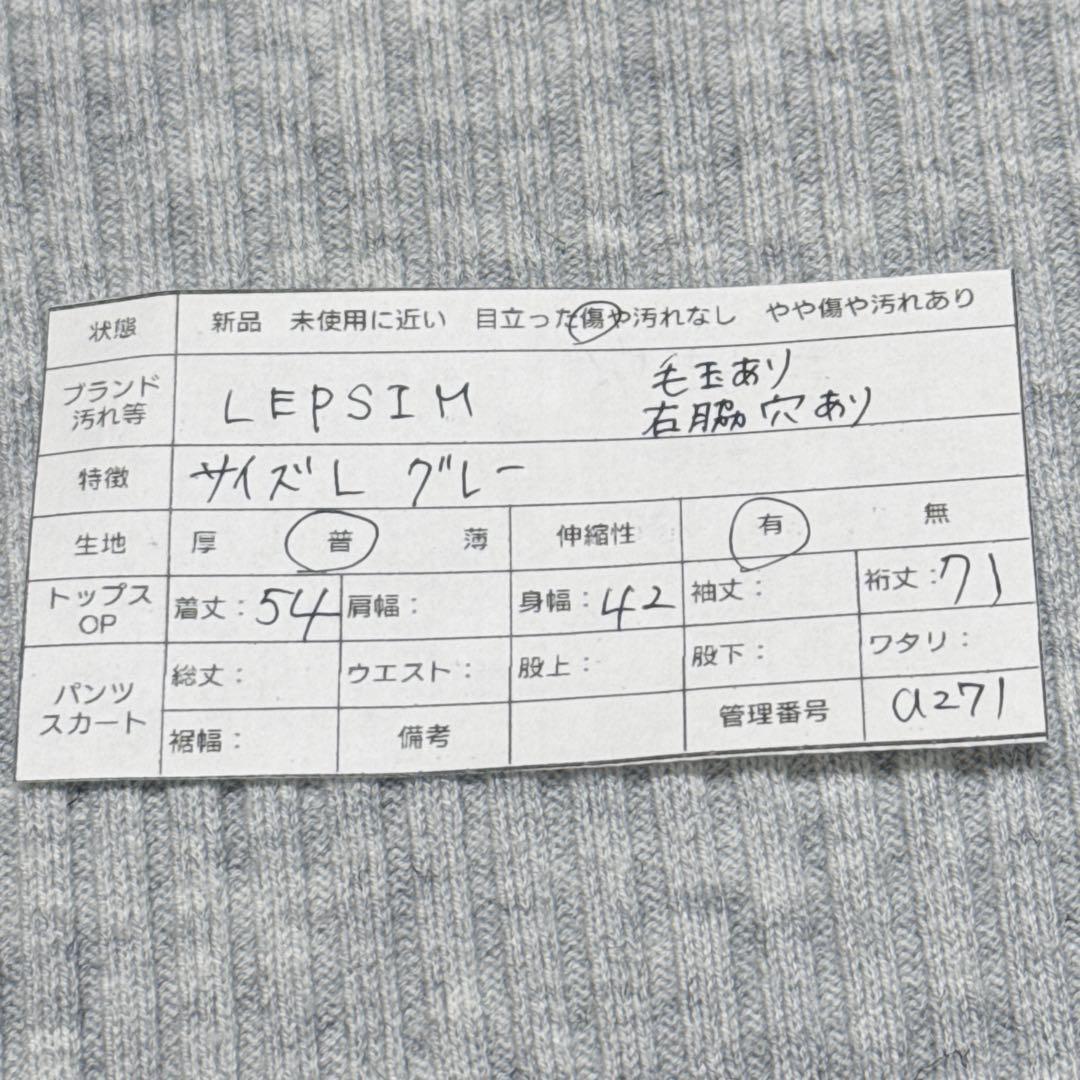 状態 新品 未使用に近い 目立った傷や汚れなし やや傷や汚れあり
ブランド 汚れ等 LEPSIM 毛玉あり
右脇 穴あり
特徴 サイズL グレー
生地 厚 普 薄 伸縮性 有 無
トップス OP 着丈：54 肩幅： 身幅：42 袖丈： 裄丈：71
パンツ スカート 総丈： ウエスト： 股上： 股下： ワタリ：
裾幅： 備考 管理番号 a271